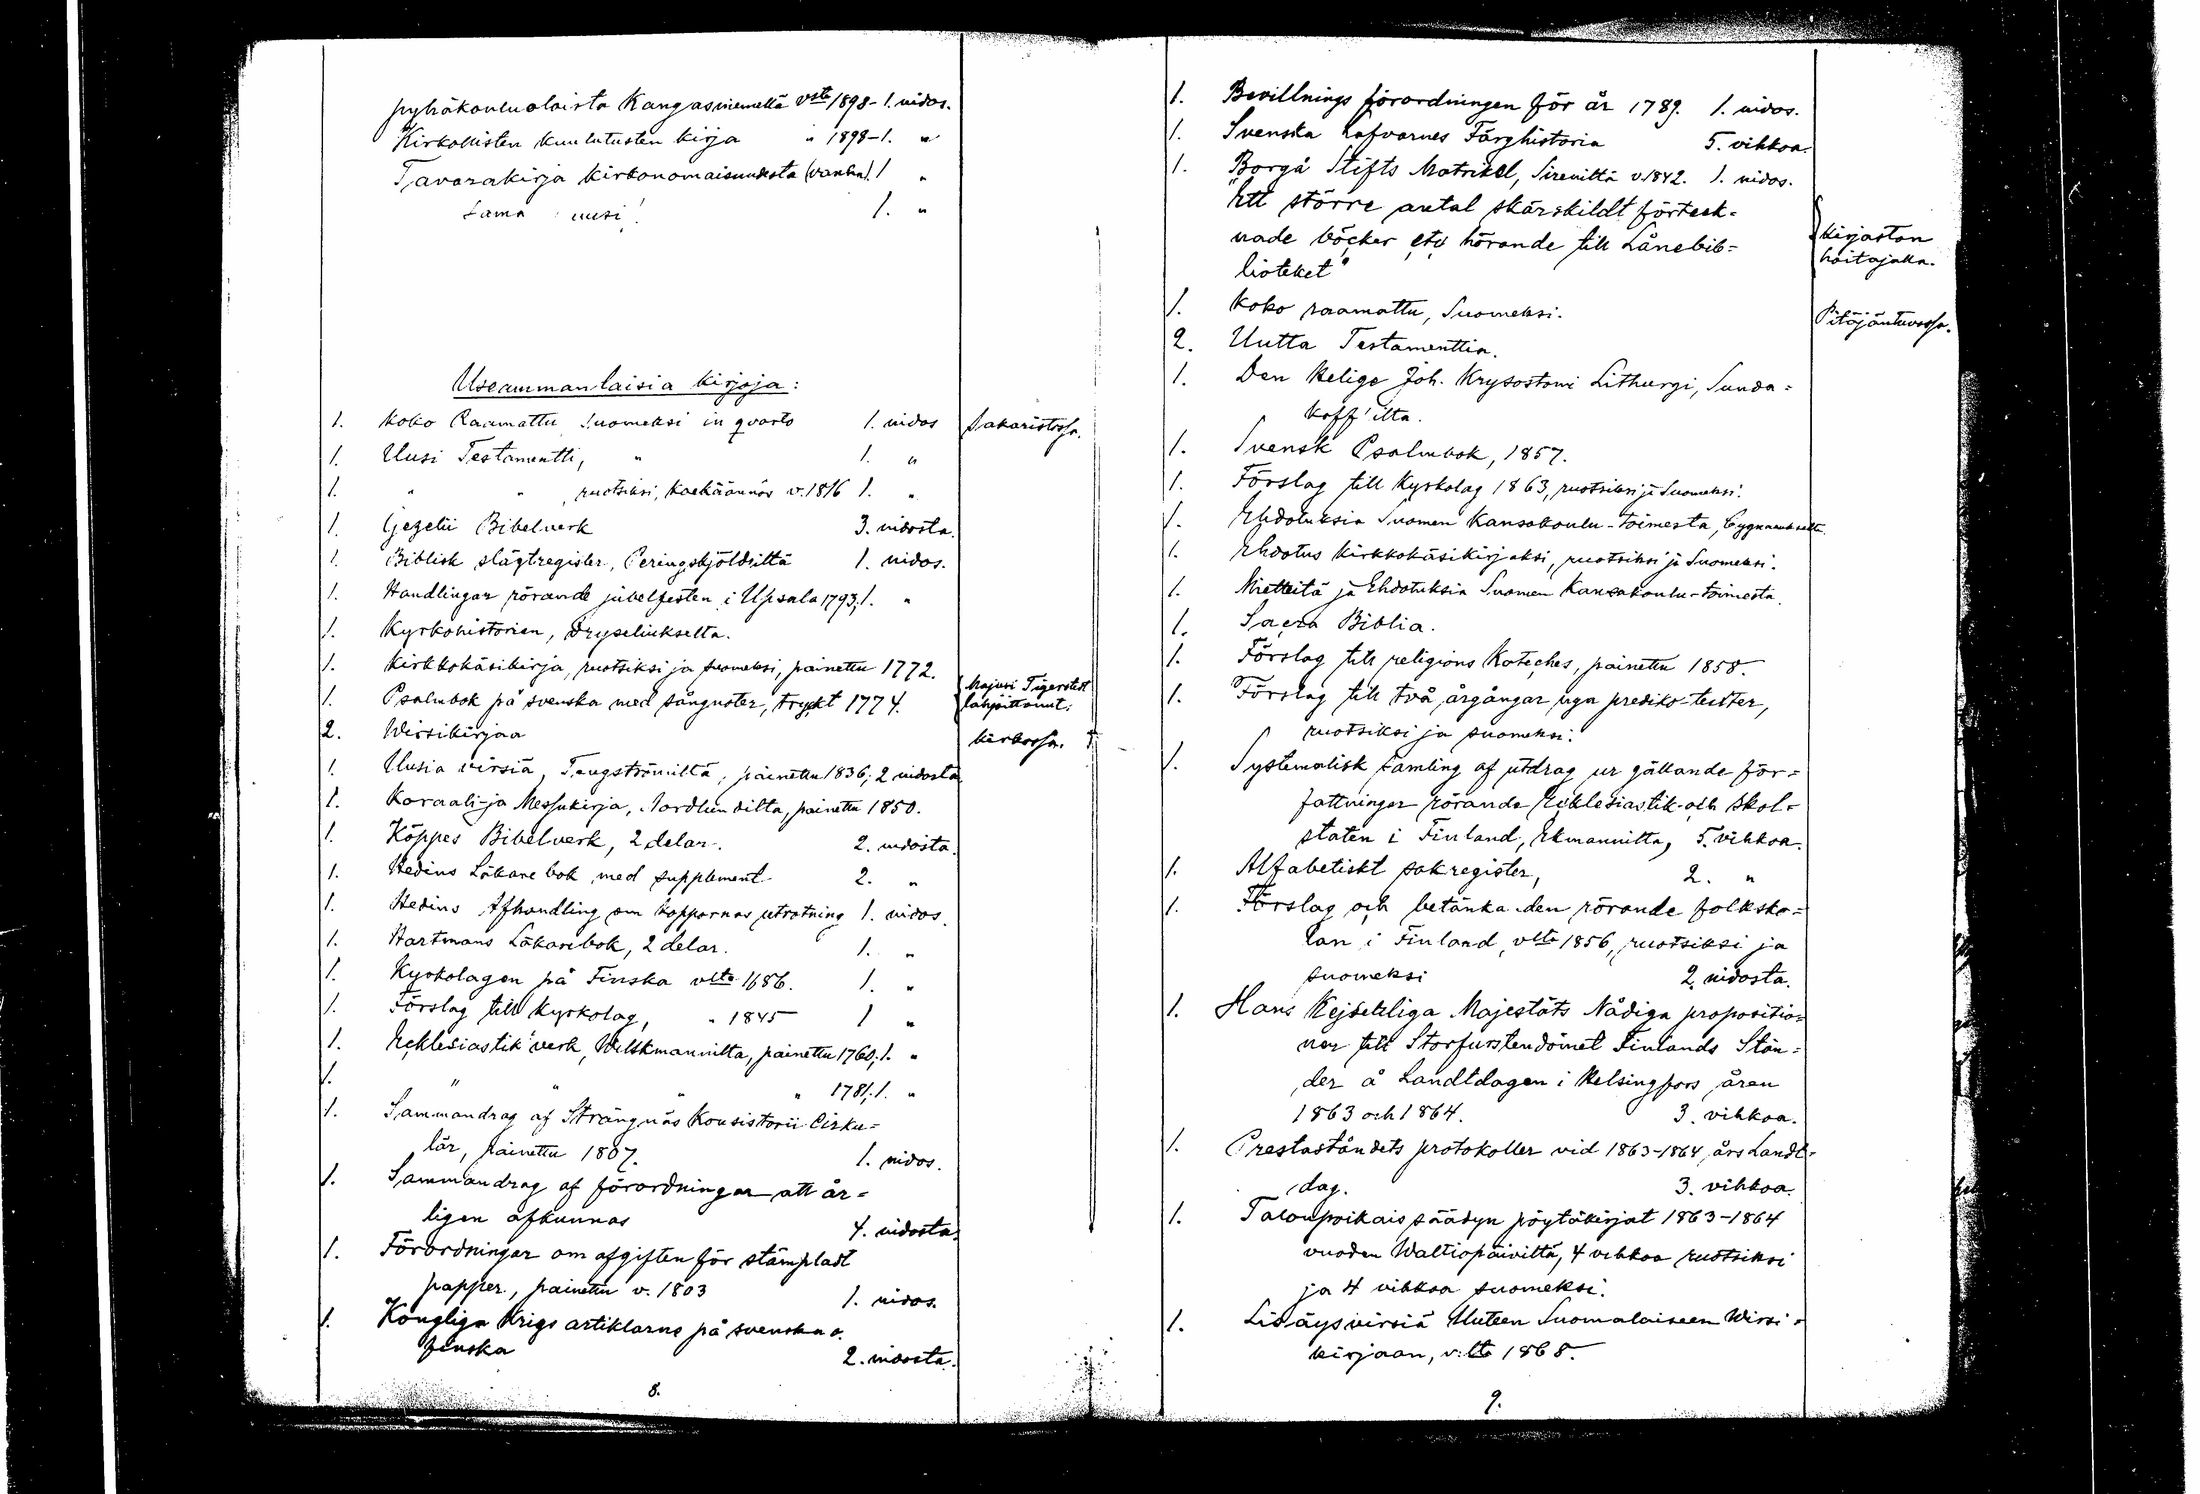 pyhäkoululaista Kangasniemellä vsta 1898- 1. nidos.
Kirkollisten kuulutusten kirja " 1898- 1. "
Tavarakirja kirkonomaisuudesta (vanha). 1 "
Sama uusi! 1. "
Useammanlaisia kirjoja:
1. Koko Raamattu Suomeksi in qvarto 1. nidos Sakaristossa.
1. Uusi Testamentti, " 1. "
1. " " ruotsiksi, koekäännös v. 1816 1. "
1. Gezelii Bibelverk 3. nidosta.
1. Biblisk slägtregister, Peringskjöldiltä 1. nidos.
1. Handlingar rörande jubelfesten i Upsala 1793, 1. "
1. Kyrkohistorien, Dryseliukselta.
1. Kirkkokäsikirja, ruotsiksi ja suomeksi, painettu 1772.
1. Psalmbok på svenska med sångnoter, tryckt 1774. Majuri Tigerstedt lahjoittanut.
2. Wirsikirjaa kirkossa.
1. Uusia virsiä, Tengströmiltä, painettu 1836; 2 nidosta
1. Koraali- ja Messukirja, Nordlundilta, painettu 1850.
1. Köppes Bibelverk, 2 delar. 2. nidosta.
1. Hedins Läkare bok med supplement. 2. "
1. Hedins Afhandling om koppornas utrotning 1. nidos.
1. Hartmans Läkarebok, 2 delar. 1. "
1. Kyrkolagen på Finska vlta 1686. 1. "
1. Förslag till Kyrkolag, " 1845 1 "
1. Ecklesiastik verk, Wilskmannilta, painettu 1760; 1. "
1. " " " " 1781; 1. "
1. Sammandrag af Strängnäs Konsistorii Cirku=
lär, painettu 1807. 1. nidos.
1. Sammandrag af förordningar att år=
ligen afkunnas 4. nidosta.
1. Förordningar om afgiften för stämpladt
papper, painettu v. 1803 1. nidos.
1. Kongliga Krigs artiklarne på svenska o.
finska 2. nidosta.
8.
1. Bevillnings förordningen för år 1789. 1. nidos.
1. Svenska Lafvarnes Färghistoria 5. vihkoa.
1. Borgå Stifts Matrikel, Sireniltä v. 1842. 1. nidos.
"Ett större antal särskildt förteck=
nade böcker etc hörande till Lånebib= kirjaston
lioteket" hoitajalla.
1. Koko raamattu, Suomeksi. Pitäjäntuvassa.
2. Uutta Testamenttia.
1. Den Helige Joh. Krysostomi Lithurgi, Sunda=
koff'ilta.
1. Svensk Psalmbok, 1857.
1. Förslag till Kyrkolag 1863, ruotsiksi ja Suomeksi.
1. Ehdotuksia Suomen Kansakoulu-toimesta, Cygnaeukselta.
1. Ehdotus kirkkokäsikirjaksi, ruotsiksi ja Suomeksi.
1. Mietteitä ja Ehdotuksia Suomen Kansakoulu-toimesta.
1. Sacra Biblia.
1. Förslag till religions Kateches, painettu 1858.
1. Förslag till två årgångar nya prediko-texter,
ruotsiksi ja suomeksi.
1. Systematisk samling af utdrag ur gällande för=
fattningar rörande Ecklesiastik- och Skol=
staten i Finland, Ekmannilta, 5. vihkoa.
1. Alfabetiskt sakregister, 2. "
1. Förslag och betänkanden rörande folksko=
lan i Finland, vlta 1856, ruotsiksi ja
suomeksi 2. nidosta.
1. Hans Kejserliga Majestäts Nådiga propositio=
ner till Storfurstendömet Finlands Stän=
der å Landtdagen i Helsingfors åren
1863 och 1864. 3. vihkoa.
1. Prestaståndets protokoller vid 1863-1864 års Landt=
dag. 3. vihkoa.
1. Talonpoikaissäädyn pöytäkirjat 1863-1864
vuoden Waltiopäiviltä, 4 vihkoa ruotsiksi
ja 4 vihkoa suomeksi.
1. Lisäysvirsiä Uuteen Suomalaiseen Wirsi=
kirjaan, v:lta 1868.
9.